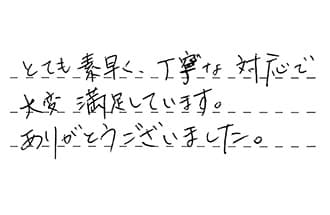 とても素早く、丁寧な対応で
大変満足しています。
ありがとうございました。